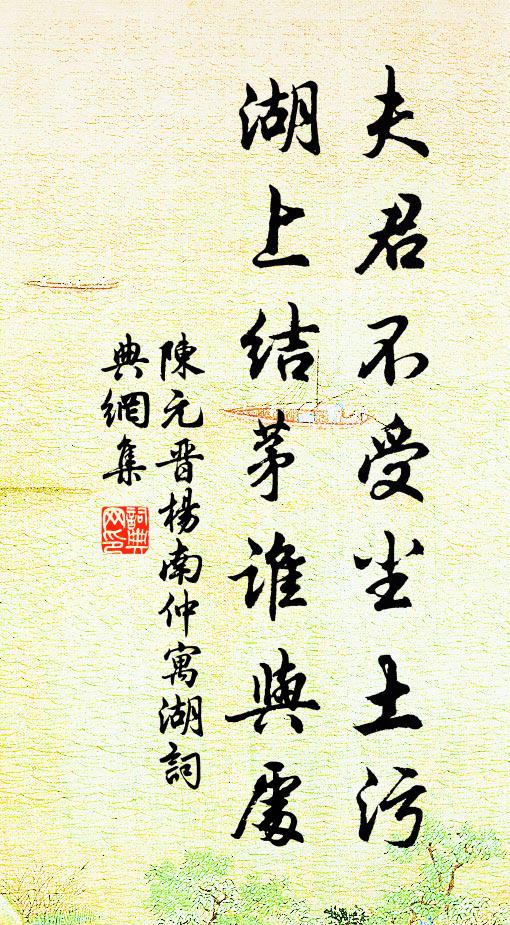 夫君不受尘土污
湖上结茅谁與處
陳元晋楊南仲寓湖詞
典網集
詞典
网印